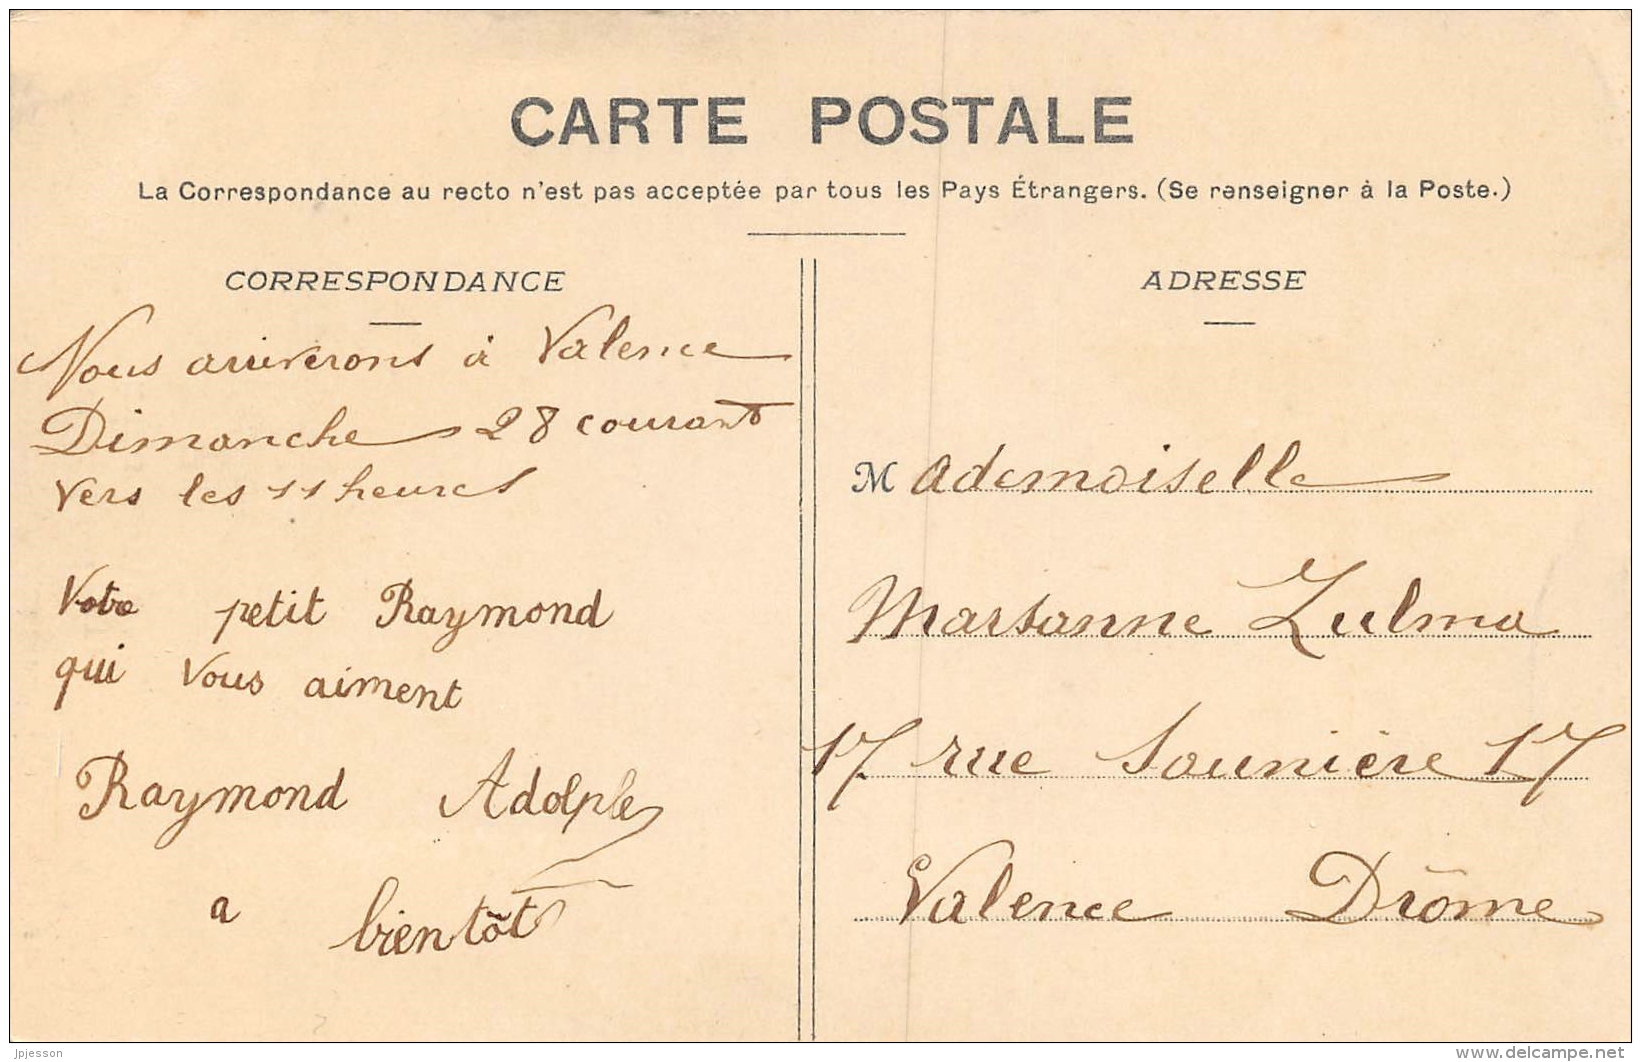 CARTE POSTALE
La Correspondance au recto n'est pas acceptée par tous les Pays Étrangers. (Se renseigner à la Poste.)
CORRESPONDANCE
Nous arriverons à Valence
Dimanche 28 courant
vers les 11 heures
Votre petit Raymond
qui vous aiment
Raymond Adolphe
a bientôt
ADRESSE
Mademoiselle
Marsanne Zulma
17 rue Saunière 17
Valence Drôme
jpjesson
delcampe.net